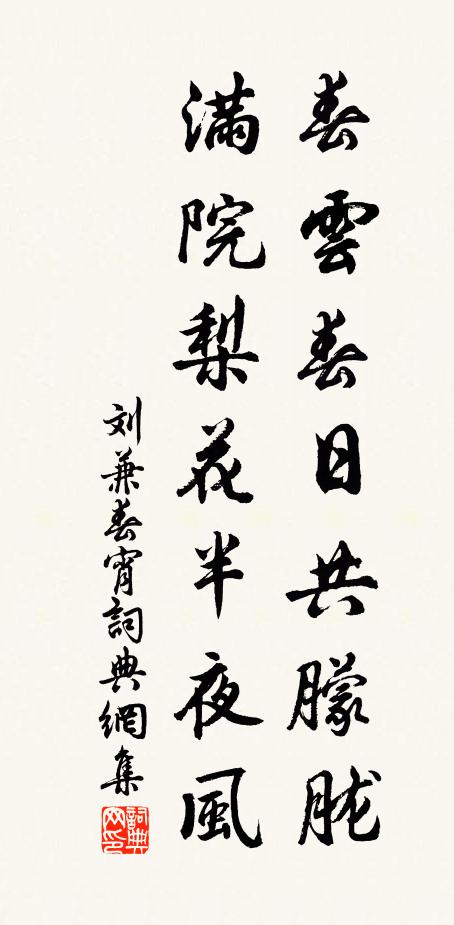 春雲春日共朦朧
滿院梨花半夜風
刘兼春宵詞典網集
詞典网印